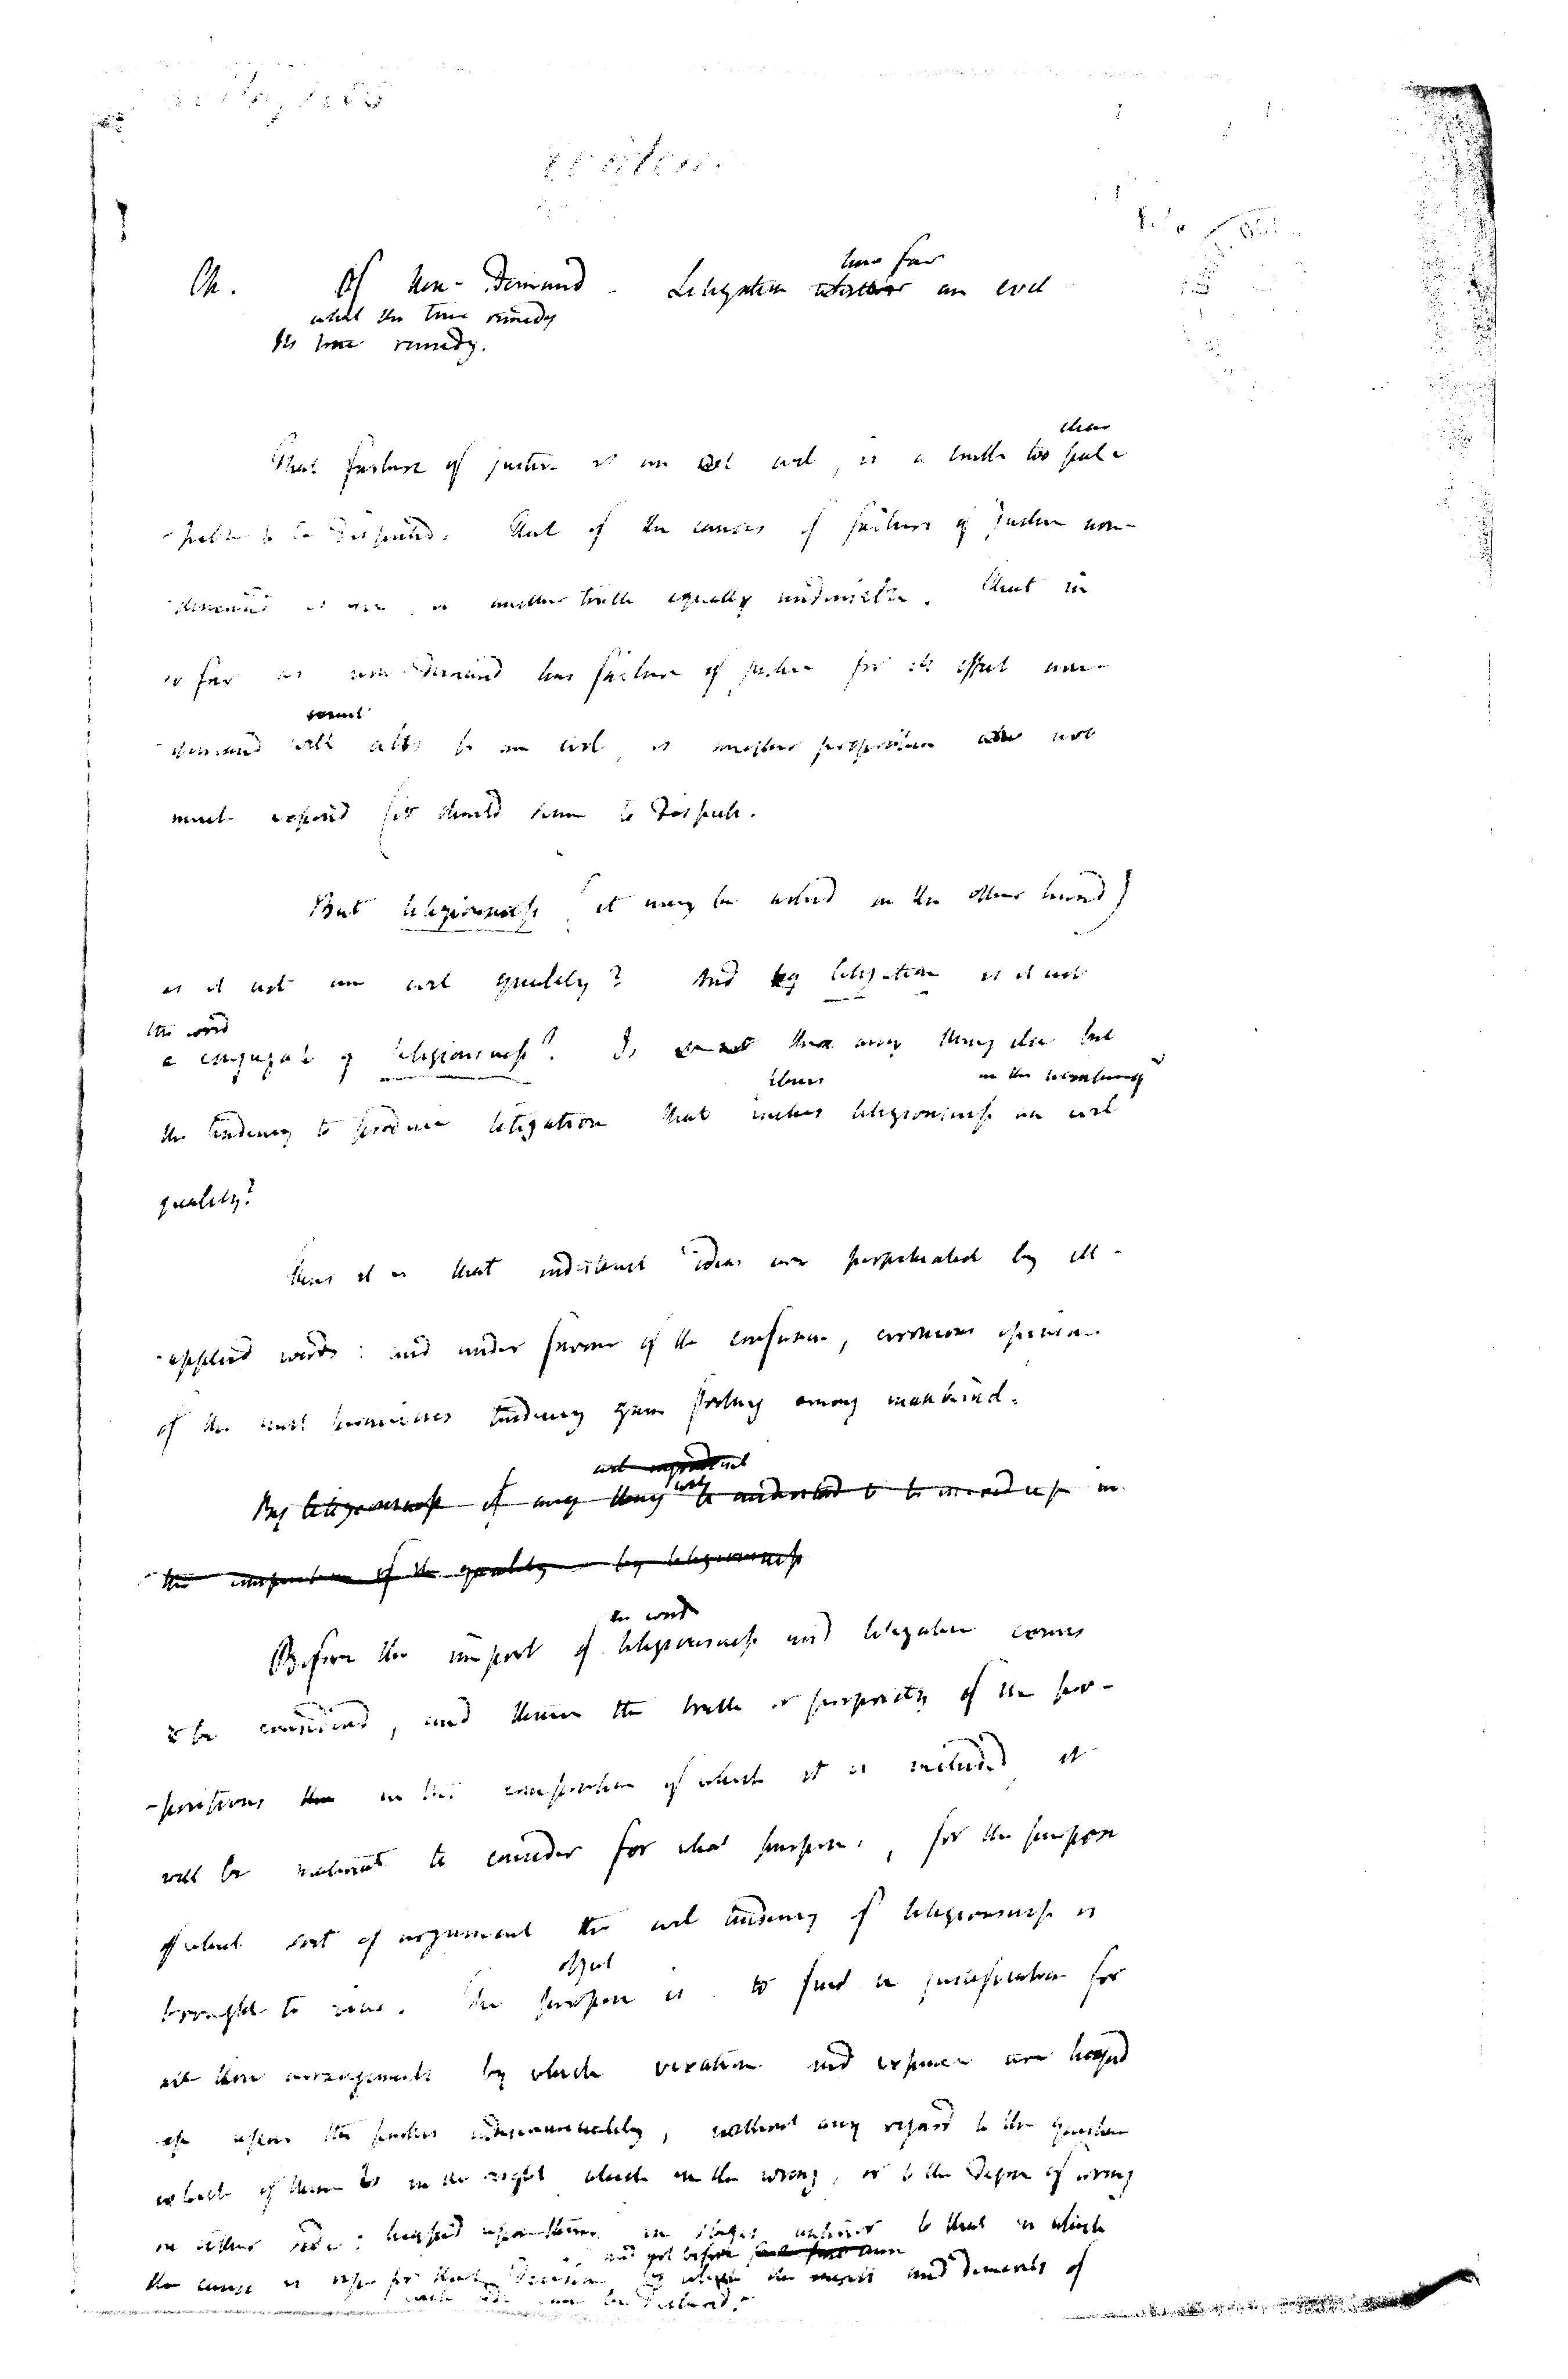 how far
Ch. Of Non-Demand - Litigation whether an evil
what the true remedy
Its true remedy.
clear
That failure of justice is an evil, is a truth too pal-
-pable to be disputed. That of the causes of failure of justice non-
-demand is one, is another truth equally undeniable. That in
so far as non-demand has failure of justice for its effect non-
-demand will be an evil, is another proposition not
much exposed (it should seem to dispute.
But litigiousness (it may be asked on the other hand)
is it not an evil quality? And by litigation is it not
the word
a conjugate of litigiousness? Is there any thing else but
thus in the
the tendency to produce litigation that makes litigiousness an evil
quality?
Thus it is that indistinct ideas are perpetuated by ill-
-applied words: and under favour of the confusion, erroneous opinions
of the most pernicious tendency gain footing among mankind.
By litigiousness if any thing be understood to be mixed up in
the composition of the quality by litigiousness
the word
Before the import of litigiousness and litigation comes
to be considered, and thence the truth or propriety of the pro-
-positions in the composition of which it is included, it
will be material to consider for what purpose, for the purpose
of what sort of argument the evil tendency of litigiousness is
object
brought to view. The purpose is to find a justification for
all those arrangements by which vexation and expence are heaped
up upon the parties indiscriminately, without any regard to the question
which of them is in the right which in the wrong, or to the degree of wrong
on either side: heaped upon them in stages anterior to that in which
and yet before
the cause is ripe for that decision by which the merits and demerits of
each side can be declared.